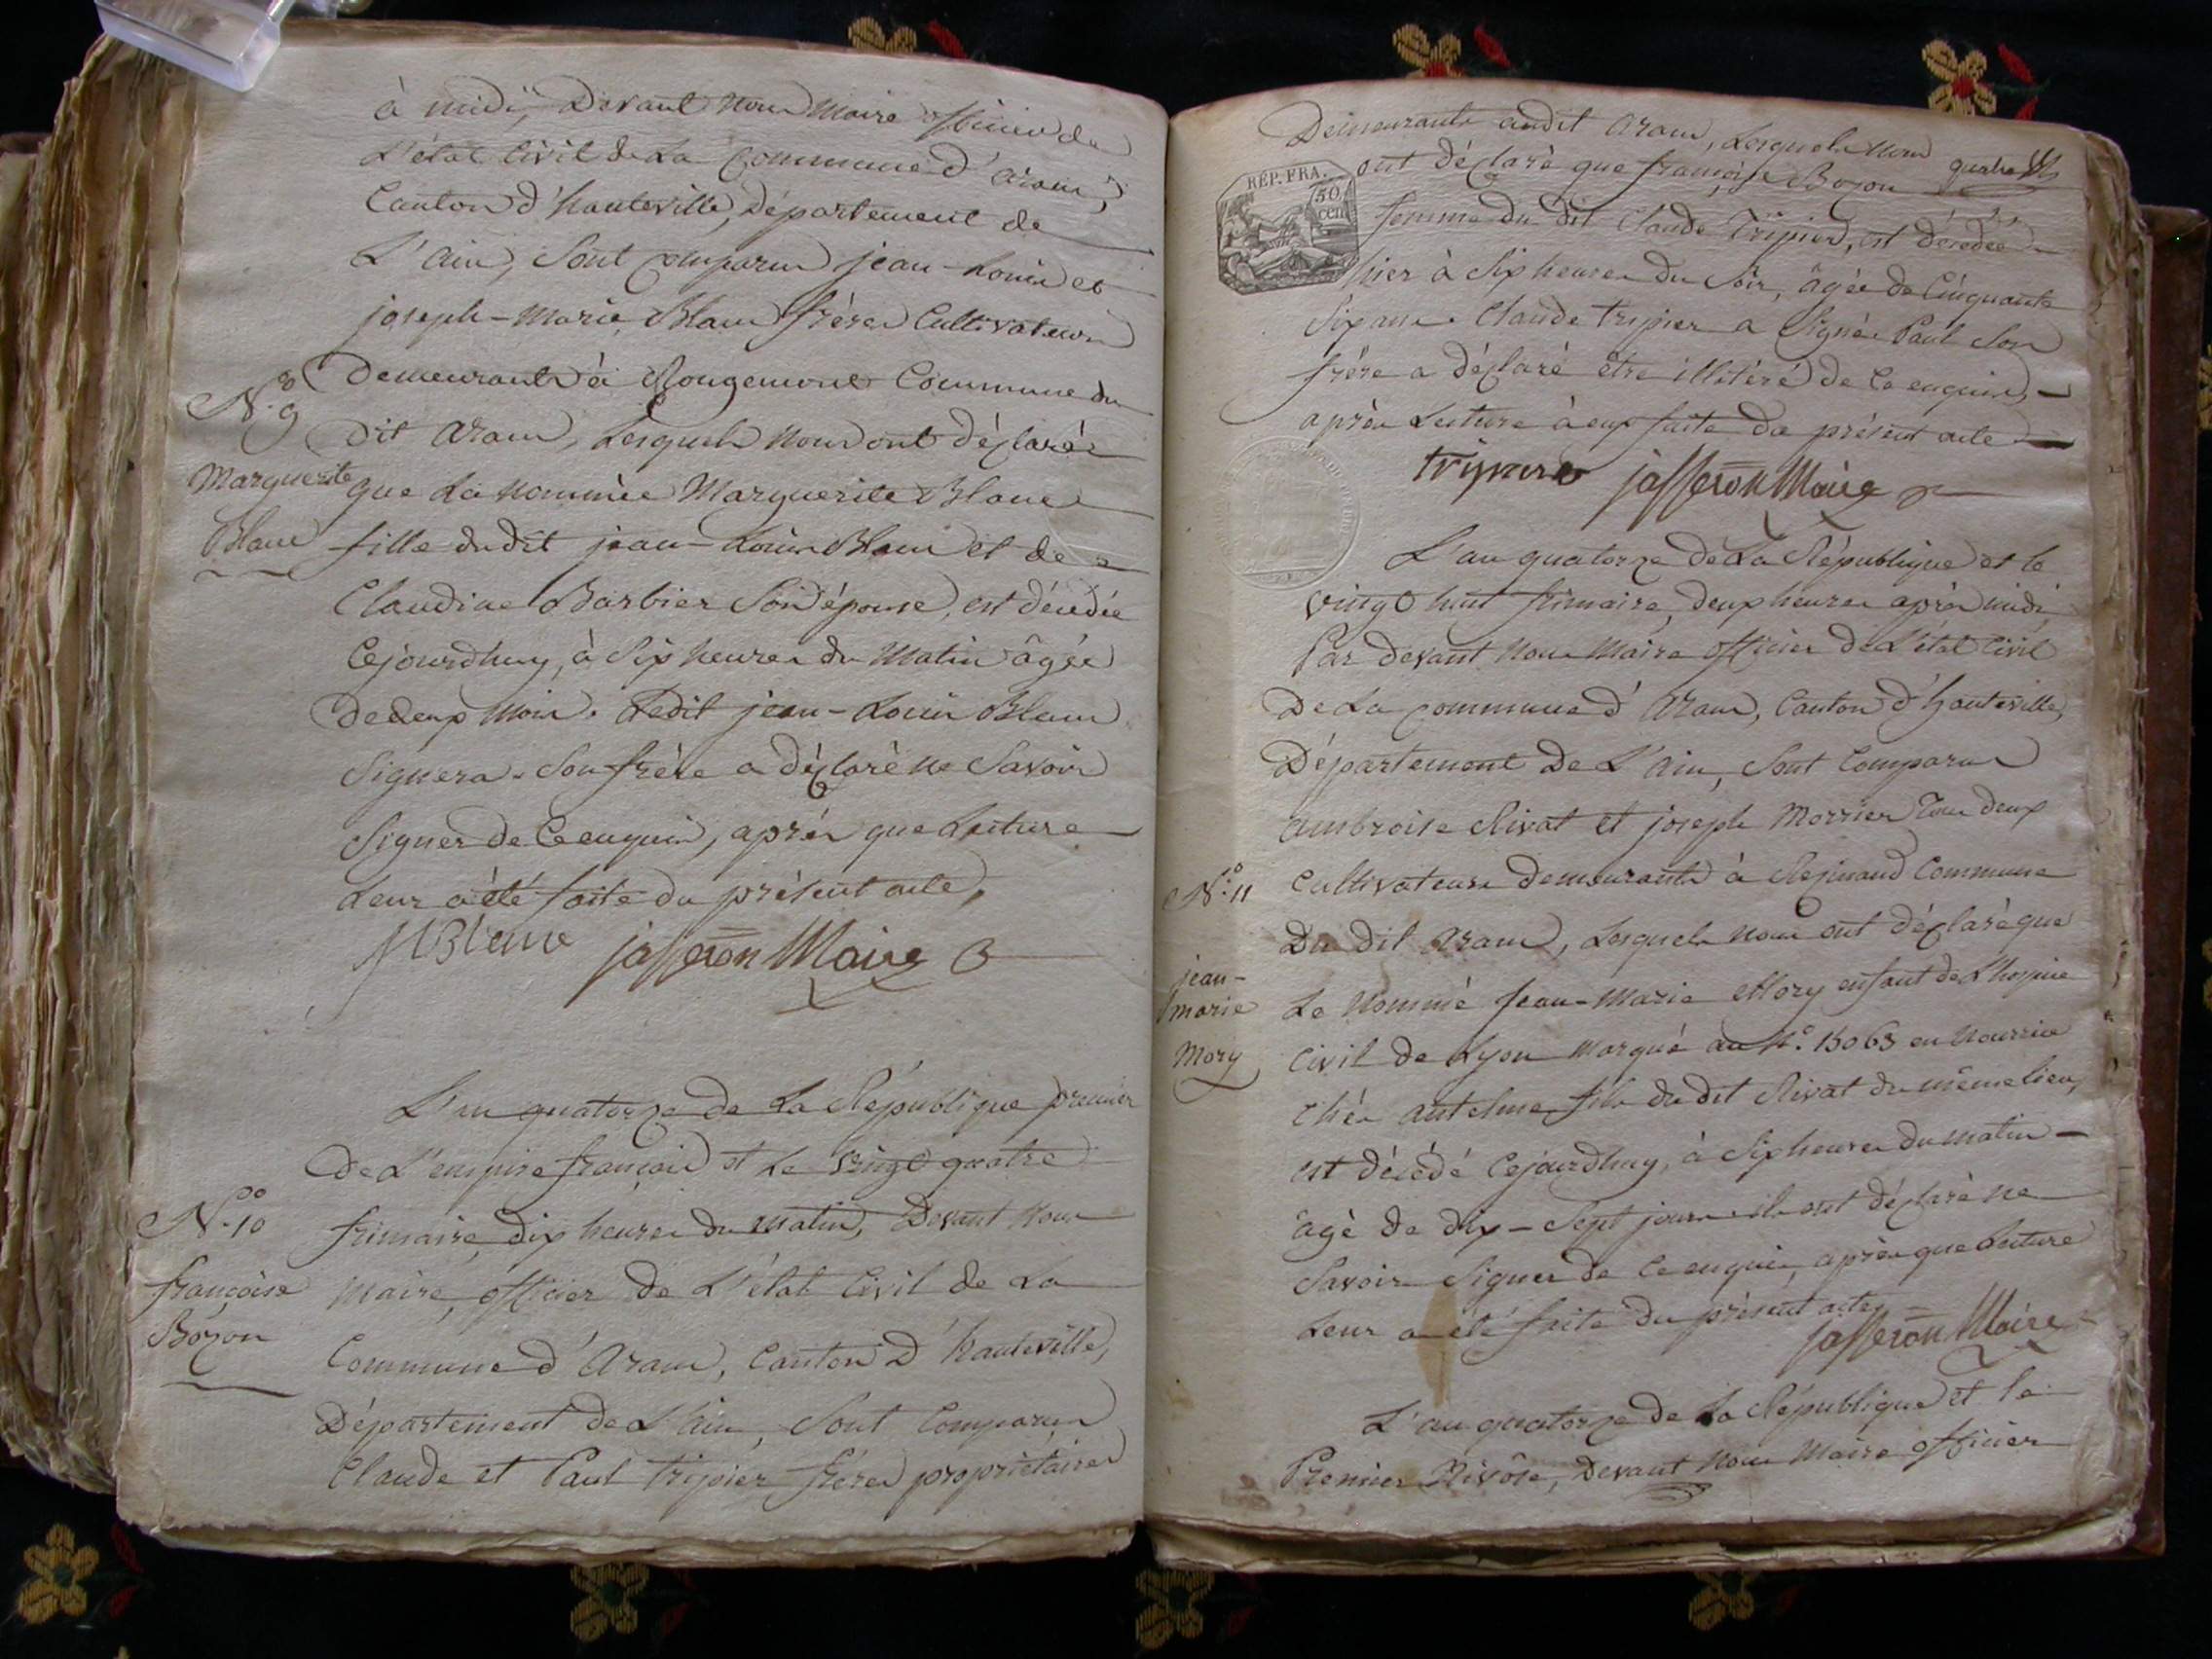 à midi, Devant nous Maire officier de
L'état Civil de La Commune d'aranc,
Canton d'hauteville, Département de
L'ain, Sont comparus jean-Louis et
joseph-marie Blanc frères Cultivateurs
Demeurants à Rougemont Commune du
N.° 9
dit aranc, Lesquels nous ont déclarés
Marguerite
que La nommée Marguerite Blanc
Blanc
fille dudit jean-Louis Blanc et de
Claudine Barbier Son épouse, est décedée
Cejourdhuy, à Six heures du Matin âgée
de deux mois. Ledit jean-Louis Blanc
Signera. Son frère a déclaré ne Savoir
Signer de Ce enquis, après que Lecture
Leur a été faite du présent acte,
Blanc jasseron Maire
L'an quatorze de La République premier
de L'empire français et Le vingt quatre
N.° 10
frimaire, dix heures du matin, Devant nous
françoise
Maire, officier de L'état Civil de La
Bozon
Commune d'Aranc, Canton d'hauteville,
Département de L'ain, Sont Comparus
Claude et Paul tripier frères propriétaires
Demeurants audit aranc, Lesquels nous
quatre
ont déclaré que françoise Bozon
RÉP. FRA.
50 cen
femme du dit Claude Tripier, est décedée
hier à Six heures du Soir, âgée de Cinquante
Six ans. Claude tripier a Signé. Paul Son
frère a déclaré être illitéré de Ce enquis,
après Lecture à eux faite du présent acte
tripier jasseron Maire
L'an quatorze de La République et le
vingt huit frimaire, deux heures après midi,
Par devant nous Maire officier de L'état Civil
De La commune d'Aranc, Canton d'hauteville,
Département de L'ain, Sont Comparus
ambroise Rivat et joseph Morrier Tous deux
N.° 11
Cultivateurs demeurants à Resinand Commune
Du dit Aranc, Lesquels nous ont déclaré que
jean-
marie
Le Nommé Jean-Marie Mory enfant de L'hospice
Mory
Civil de Lyon marqué au N.° 15063 en nourrice
Chés antelme fils du dit Rivat du même lieu,
est décédé Cejourdhuy, à Six heures du matin
âgé de dix-Sept jours. ils ont déclaré ne
Savoir Signer de Ce enquis, après que Lecture
Leur a été faite du présent acte
jasseron Maire
L'an quatorze de La République et le
Premier Nivôse, Devant nous Maire officier